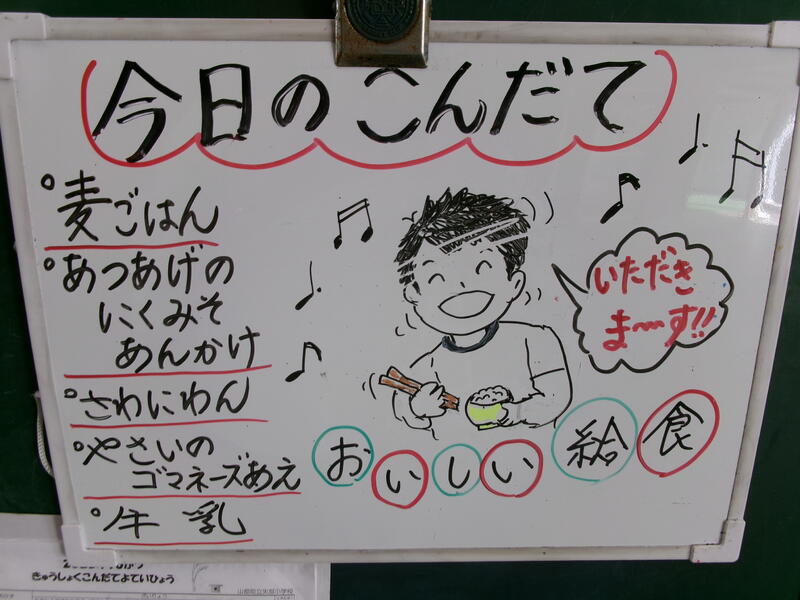 今日のこんだて
麦ごはん
あつあげの
にくみそ
あんかけ
さわにわん
やさいの
ゴマネーズあえ
牛乳
いただき
ま〜す!!
おいしい給食
きゅうしょくこんだてよていひょう